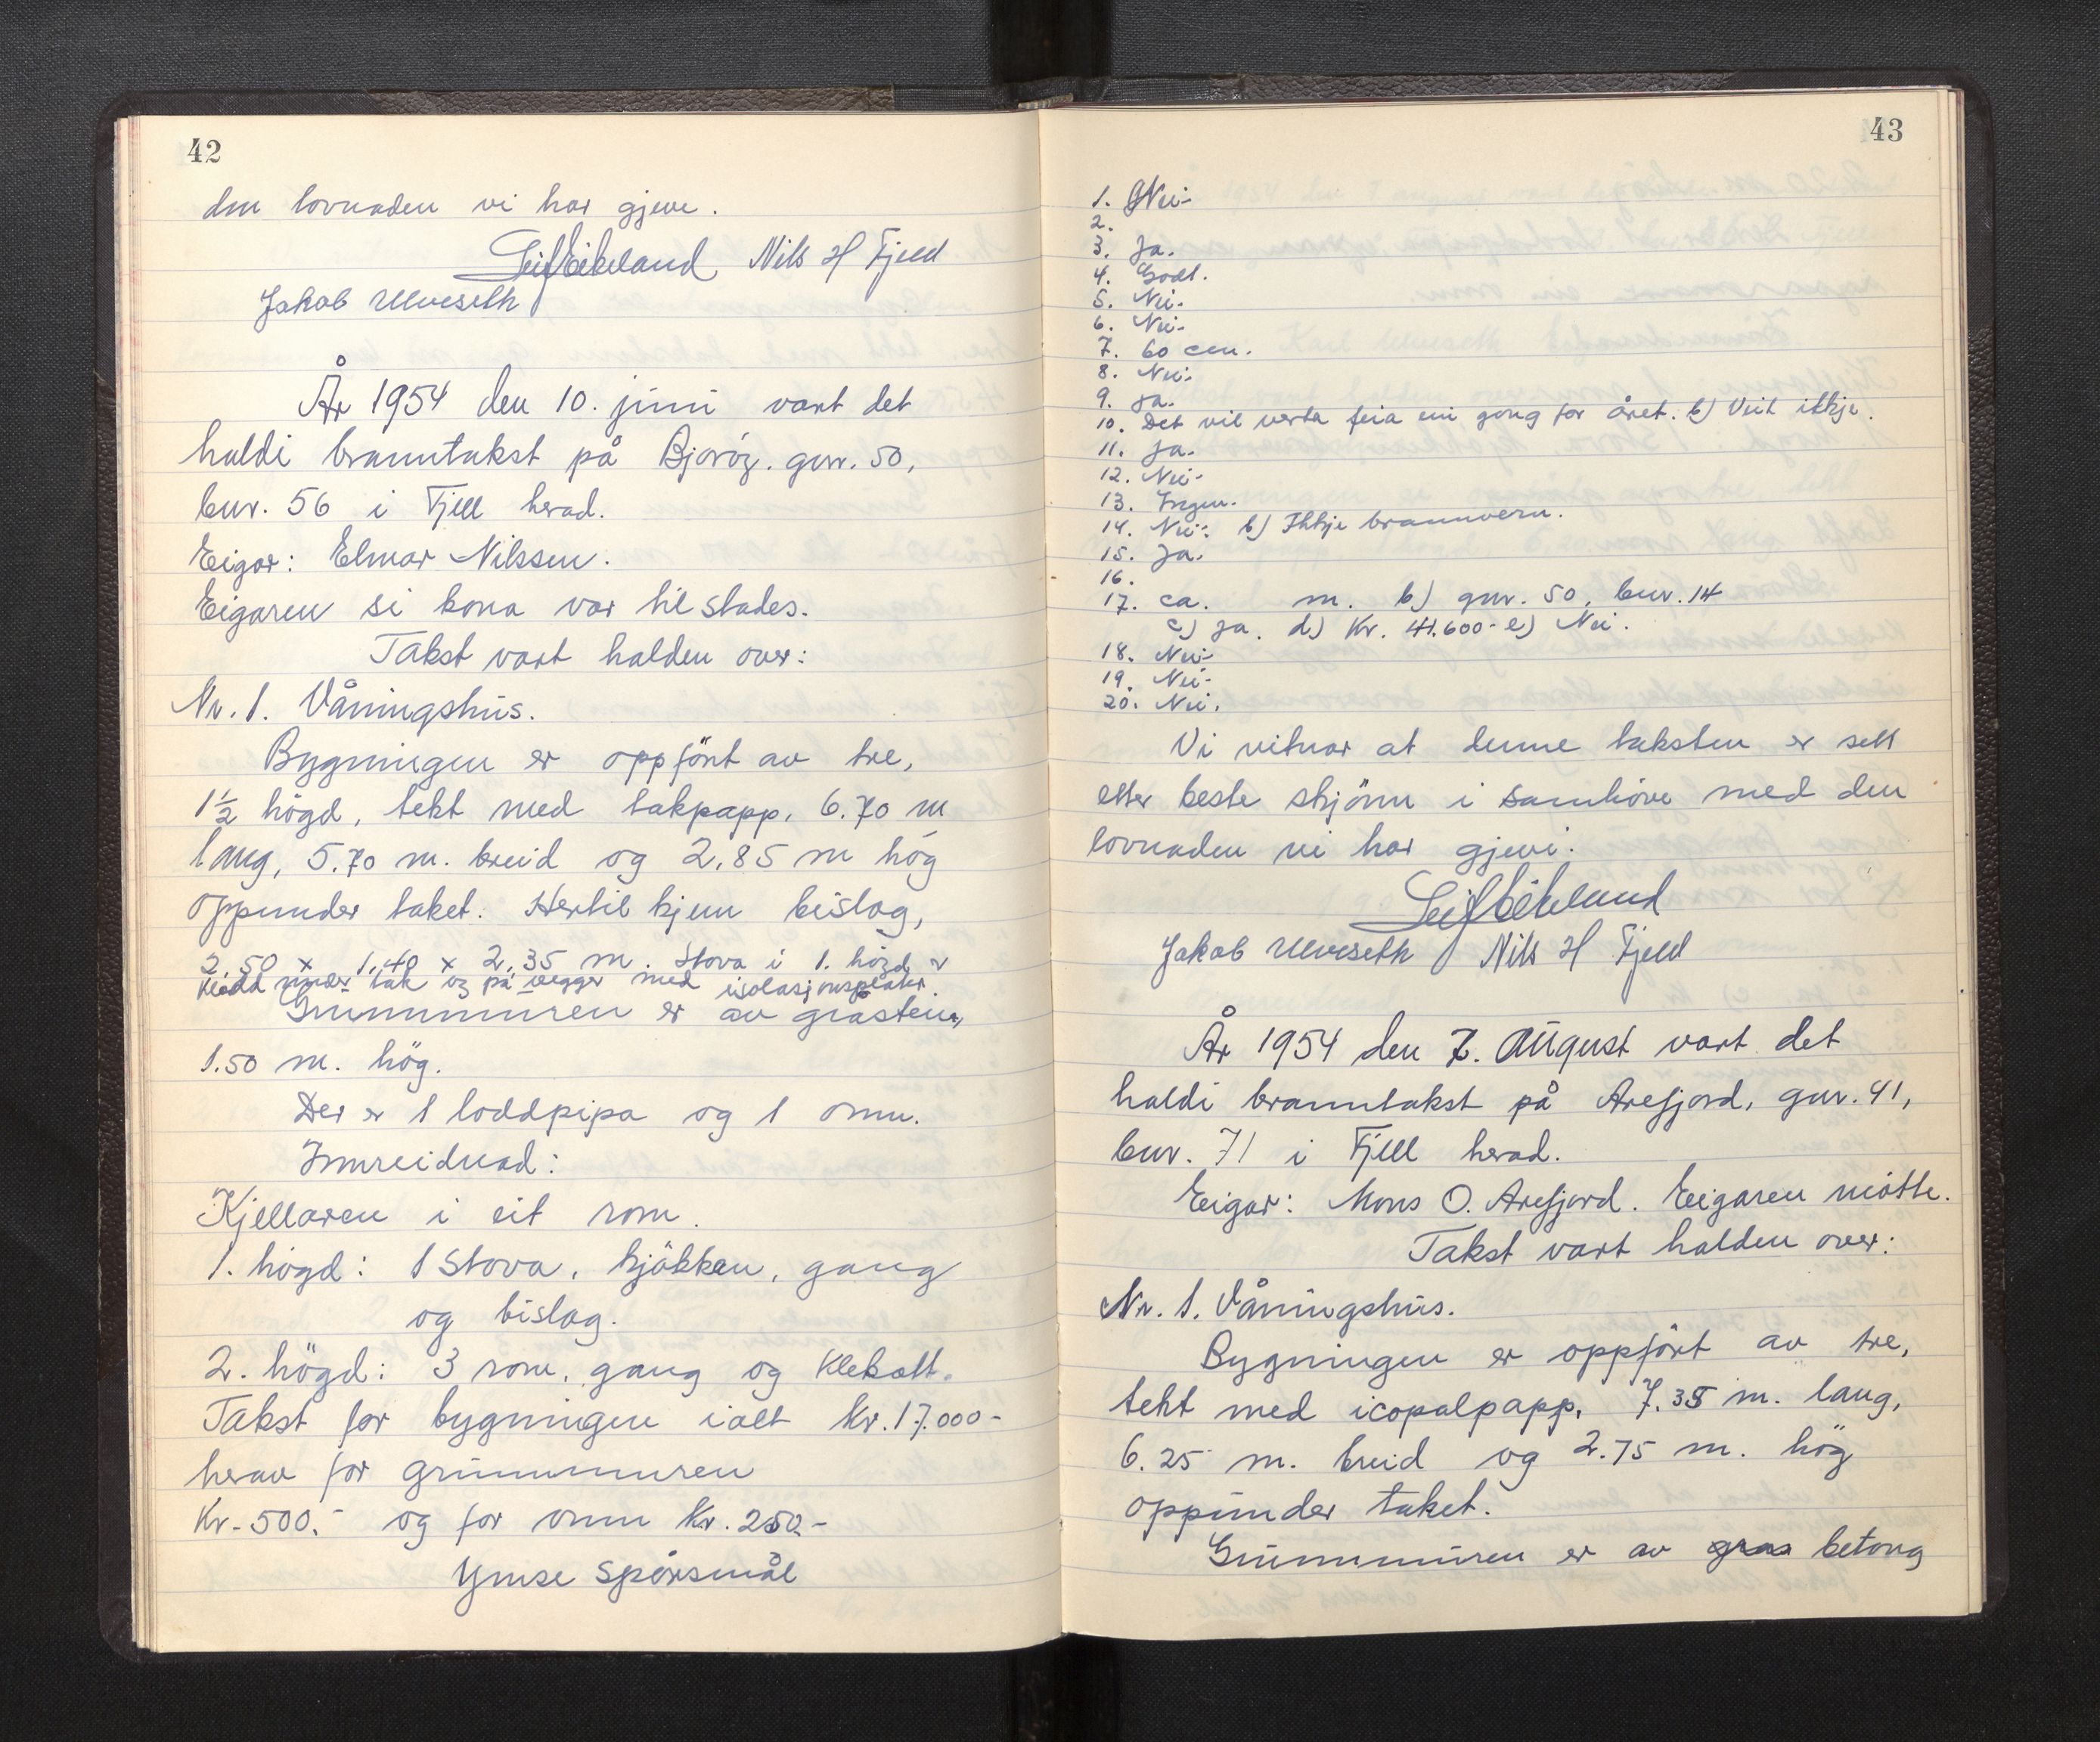 42
den lovnaden vi har gjeve.
Leif Eikeland Nils H Fjeld
Jakob Ulveseth
År 1954 den 10. juni vart det
haldi branntakst på Bjoröy. gnr. 50,
bnr. 56 i Fjell herad.
Eigar: Elmar Nilssen.
Eigaren si kona var til stades.
Takst vart halden over:
Nr. 1. Våningshus.
Bygningen er oppfört av tre,
1½ högd, tekt med takpapp, 6.70 m
lang, 5.70 m. breid og 2.85 m hög
oppunder taket. Hertil kjem bislag,
2.50 x 1.40 x 2.35 m. Stova i 1. högd er
kledd under tak og på vegger med isolasjonsplater.
Grunnmuren er av grasteins,
1.50 m. hög.
Der er 1 loddpipa og 1 omn.
Innreidnad:
Kjellaren i eit rom.
1. högd: 1 Stova, kjökken, gang
og bislag.
2. högd: 3 rom, gang og klekott.
Takst for bygningen ialt kr. 17.000-
herav for grunnmuren
Kr. 500.- og for omn kr. 250-
Ymse Spörsmål
43
1. Nei-
2.
3. Ja.
4. Godt.
5. Nei-
6. Nei-
7. 60 cm.
8. Nei-
9. Ja.
10. Det vil verta feia ein gong for året. b) Veit ikkje.
11. Ja.
12. Nei-
13. Ingen.
14. Nei- b) Ikkje brannvern.
15. Ja.
16.
17. ca. m. b) gnr. 50, bnr. 14
c) Ja. d) Kr. 41.600- e) Nei.
18. Nei-
19. Nei-
20. Nei.
Vi vitnar at denne taksten er sett
etter beste skjönn i samhöve med den
lovnaden vi har gjevi.
Leif Eikeland
Jakob Ulveseth Nils H Fjeld
År 1954 den 7. August vart det
haldi branntakst på Arefjord, gnr. 41,
bnr. 71 i Fjell herad.
Eigar: Mons O. Arefjord. Eigaren mötte.
Takst vart halden over:
Nr. 1. Våningshus.
Bygningen er oppfört av tre,
tekt med icopalpapp, 7.35 m. lang,
6.25 m. breid og 2.75 m. hög
oppunder taket.
Grunnmuren er av gras betong